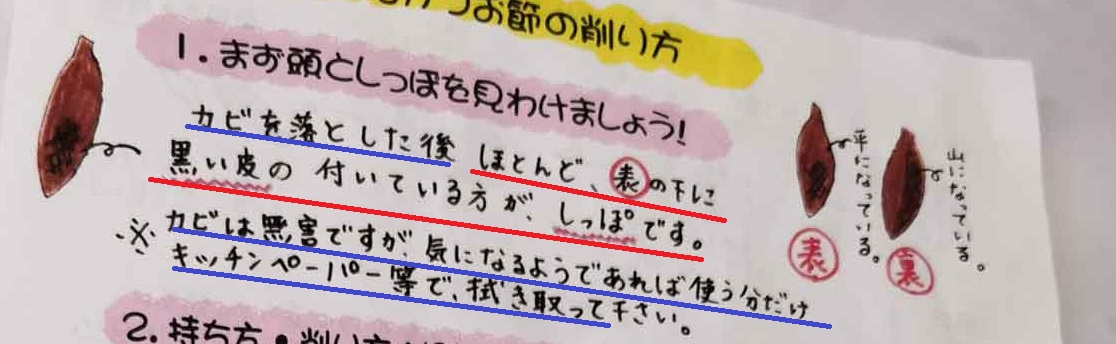 お節の削い方
1.まず頭としっぽを見わけましょう!
カビを落とした後 ほとんど、表の下に
黒い皮の 付いている方が、しっぽです。
※カビは無害ですが気になるようであれば使う分だけ
キッチンペーパー等で、拭き取って下さい。
平になっている。
表
山になっている。
裏
2.持ち方・削い方